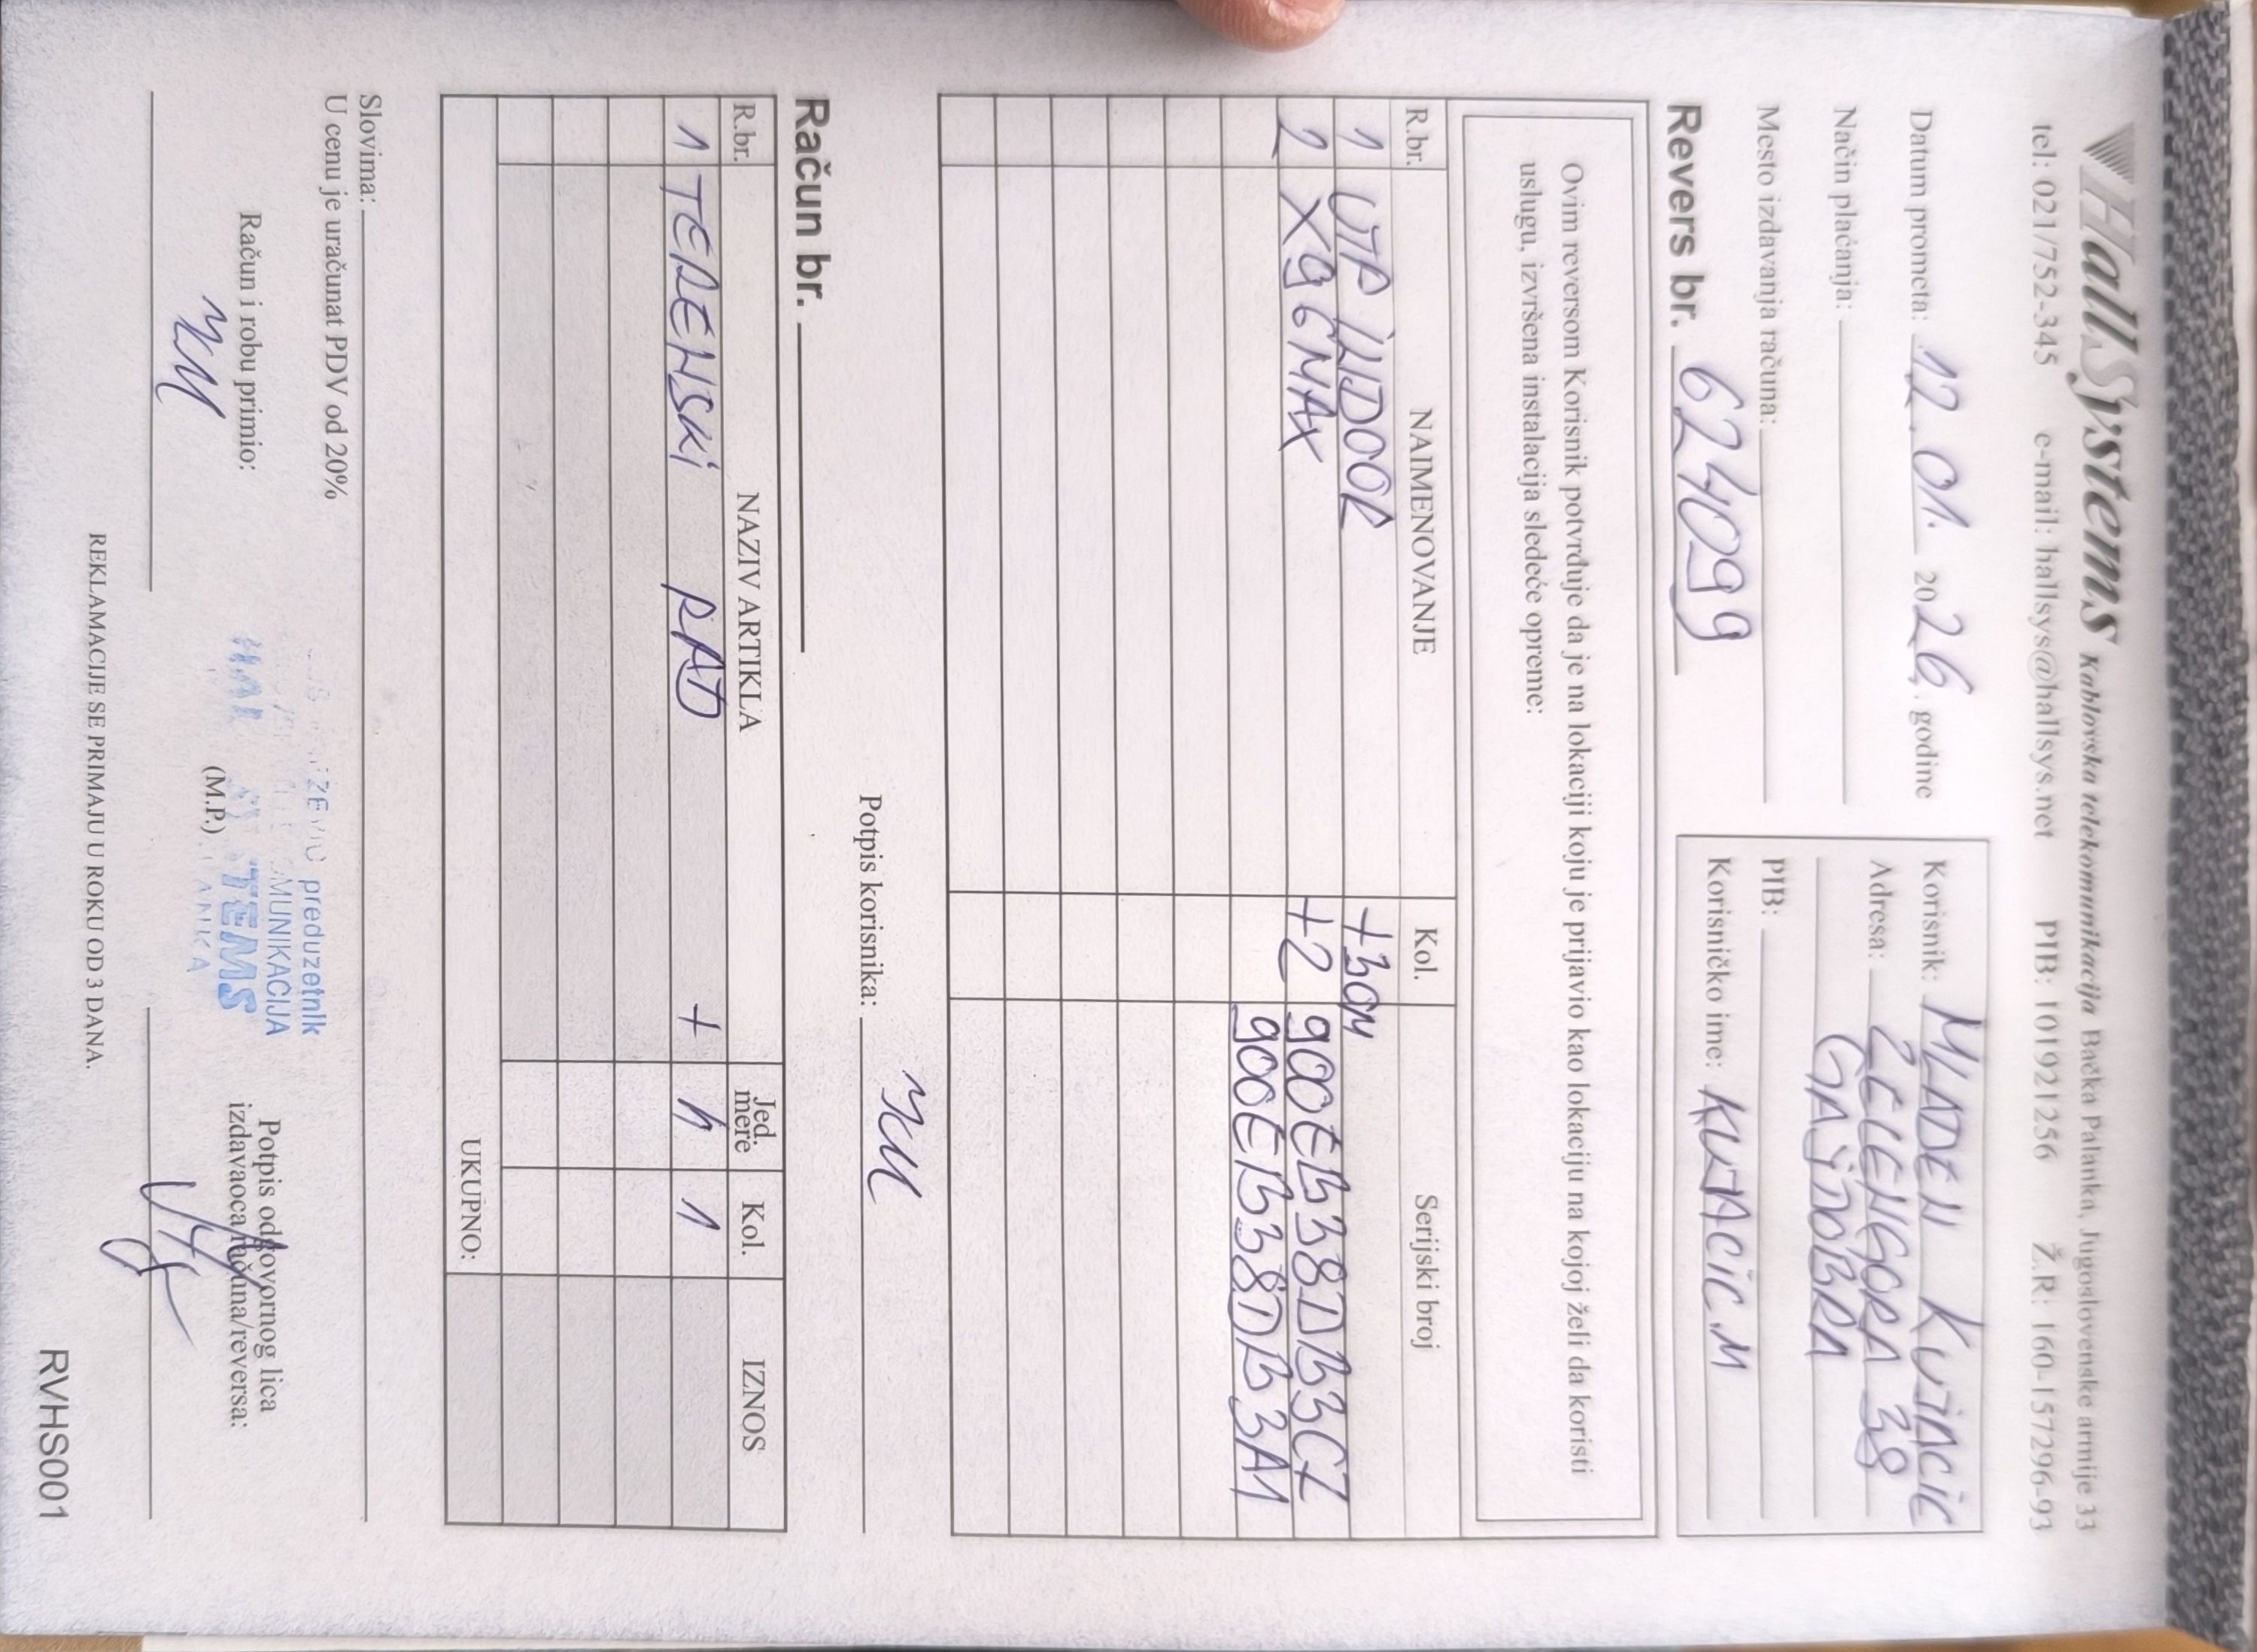 HallSystems Kablovska telekomunikacija Bačka Palanka, Jugoslovenske armije 33
tel: 021/752-345 e-mail: hallsys@hallsys.net PIB: 101921256 Ž.R: 160-157296-93
Datum prometa: 12.01. 2026. godine
Način plaćanja:
Mesto izdavanja računa:
Revers br. 6240299
Korisnik: MLADEN
Adresa: ZELENGORA 38
GAJDOBRA
PIB:
Korisničko ime:
Ovim reversom Korisnik potvrđuje da je na lokaciji koju je prijavio kao lokaciju na kojoj želi da koristi
uslugu, izvršena instalacija sledeće opreme:
R.br. NAIMENOVANJE Kol. Serijski broj
1 UTP INDOOR +30M
2 X9CMAX +2 900EB38DB3C7
900EB38DB3A1
Potpis korisnika:
Račun br.
R.br. NAZIV ARTIKLA Jed. mere Kol. IZNOS
1 TERENSKI RAD + h 1
UKUPNO:
Slovima:
U cenu je uračunat PDV od 20%
Račun i robu primio:
preduzetnik
MUNIKACIJA
TEMS
ANKA
(M.P.)
Potpis odgovornog lica
izdavaoca računa/reversa:
REKLAMACIJE SE PRIMAJU U ROKU OD 3 DANA.
RVHS001